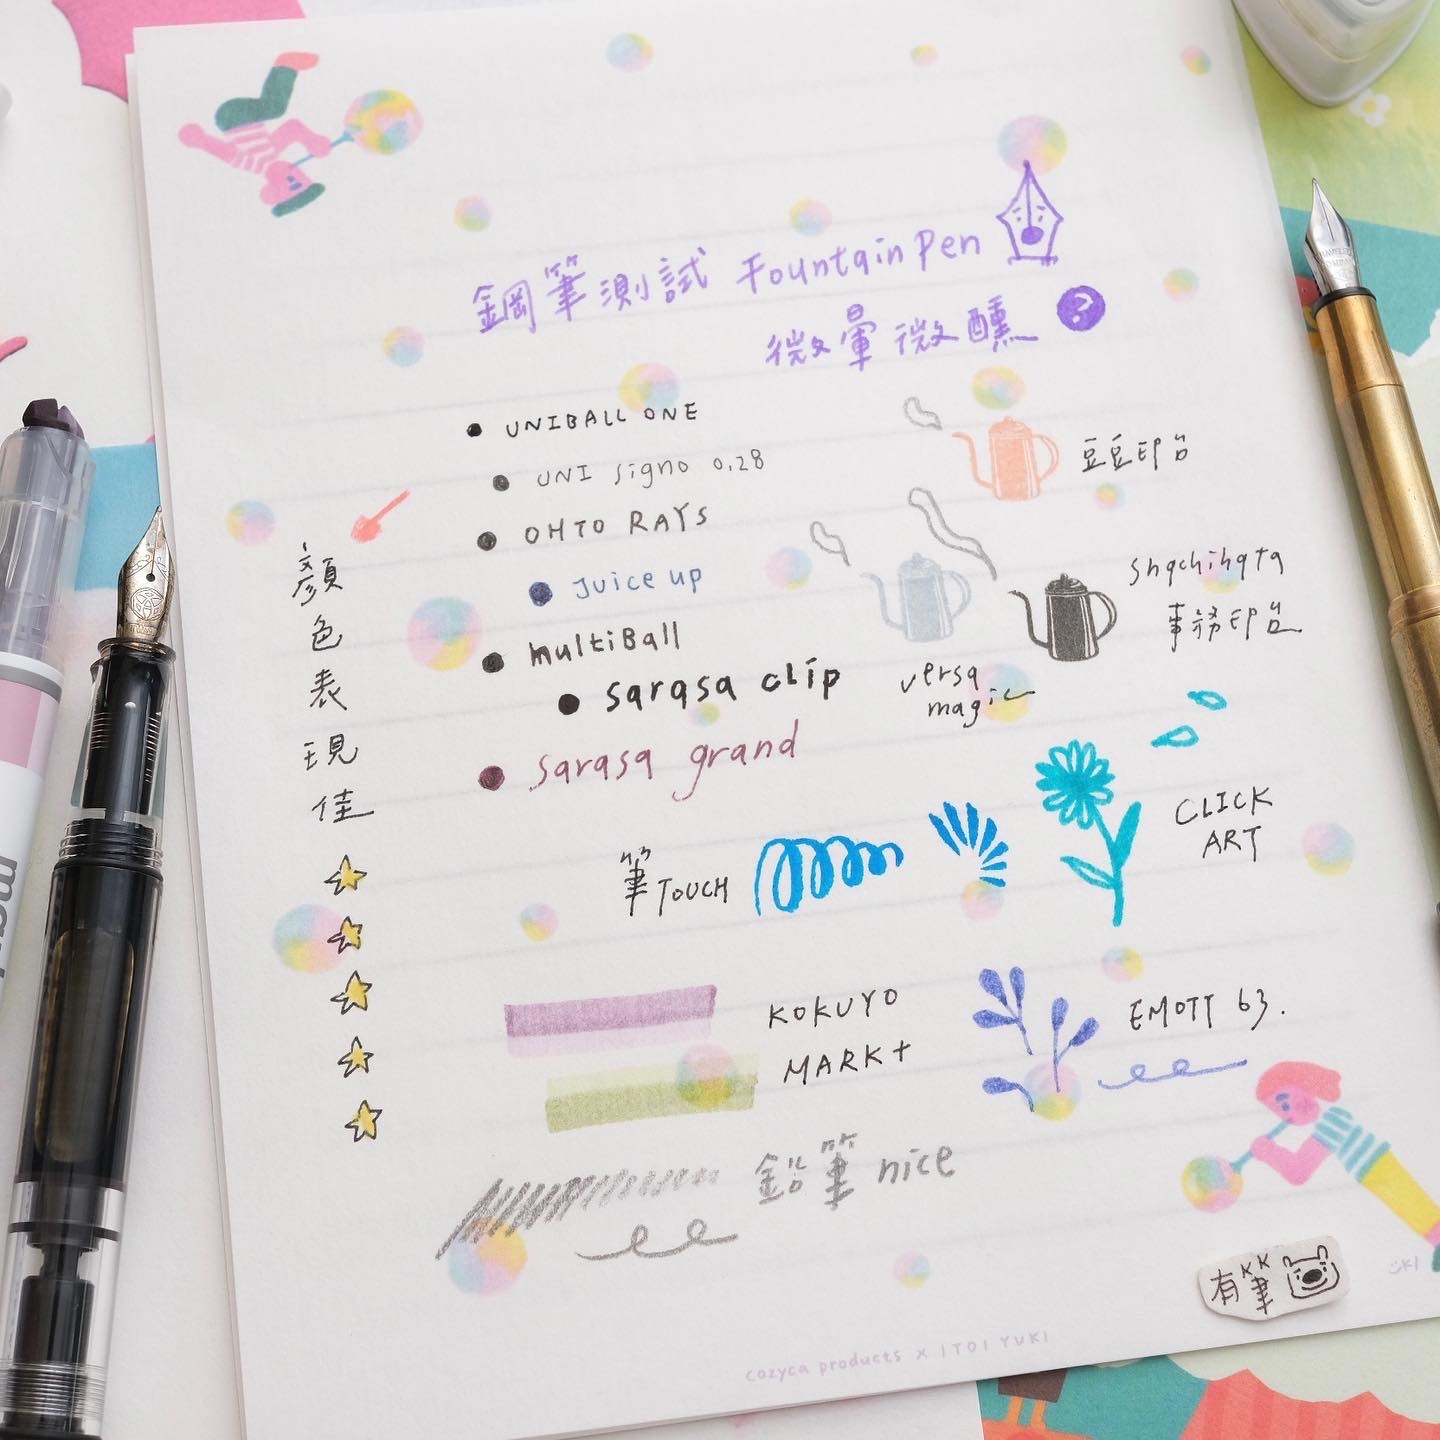 鋼筆測試 Fountain Pen
微暈微醺 ?
UNIBALL ONE
UNI signo 0.28
OHTO RAYS
Juice up
multiBall
sarasa clip
sarasa grand
顏色表現佳
豆豆印台
shachihata
事務印台
versa
magic
CLICK
ART
筆 TOUCH
KOKUYO
MARK+
EMOTT 63.
鉛筆 nice
有筆
cozyca products × ITOI YUKI